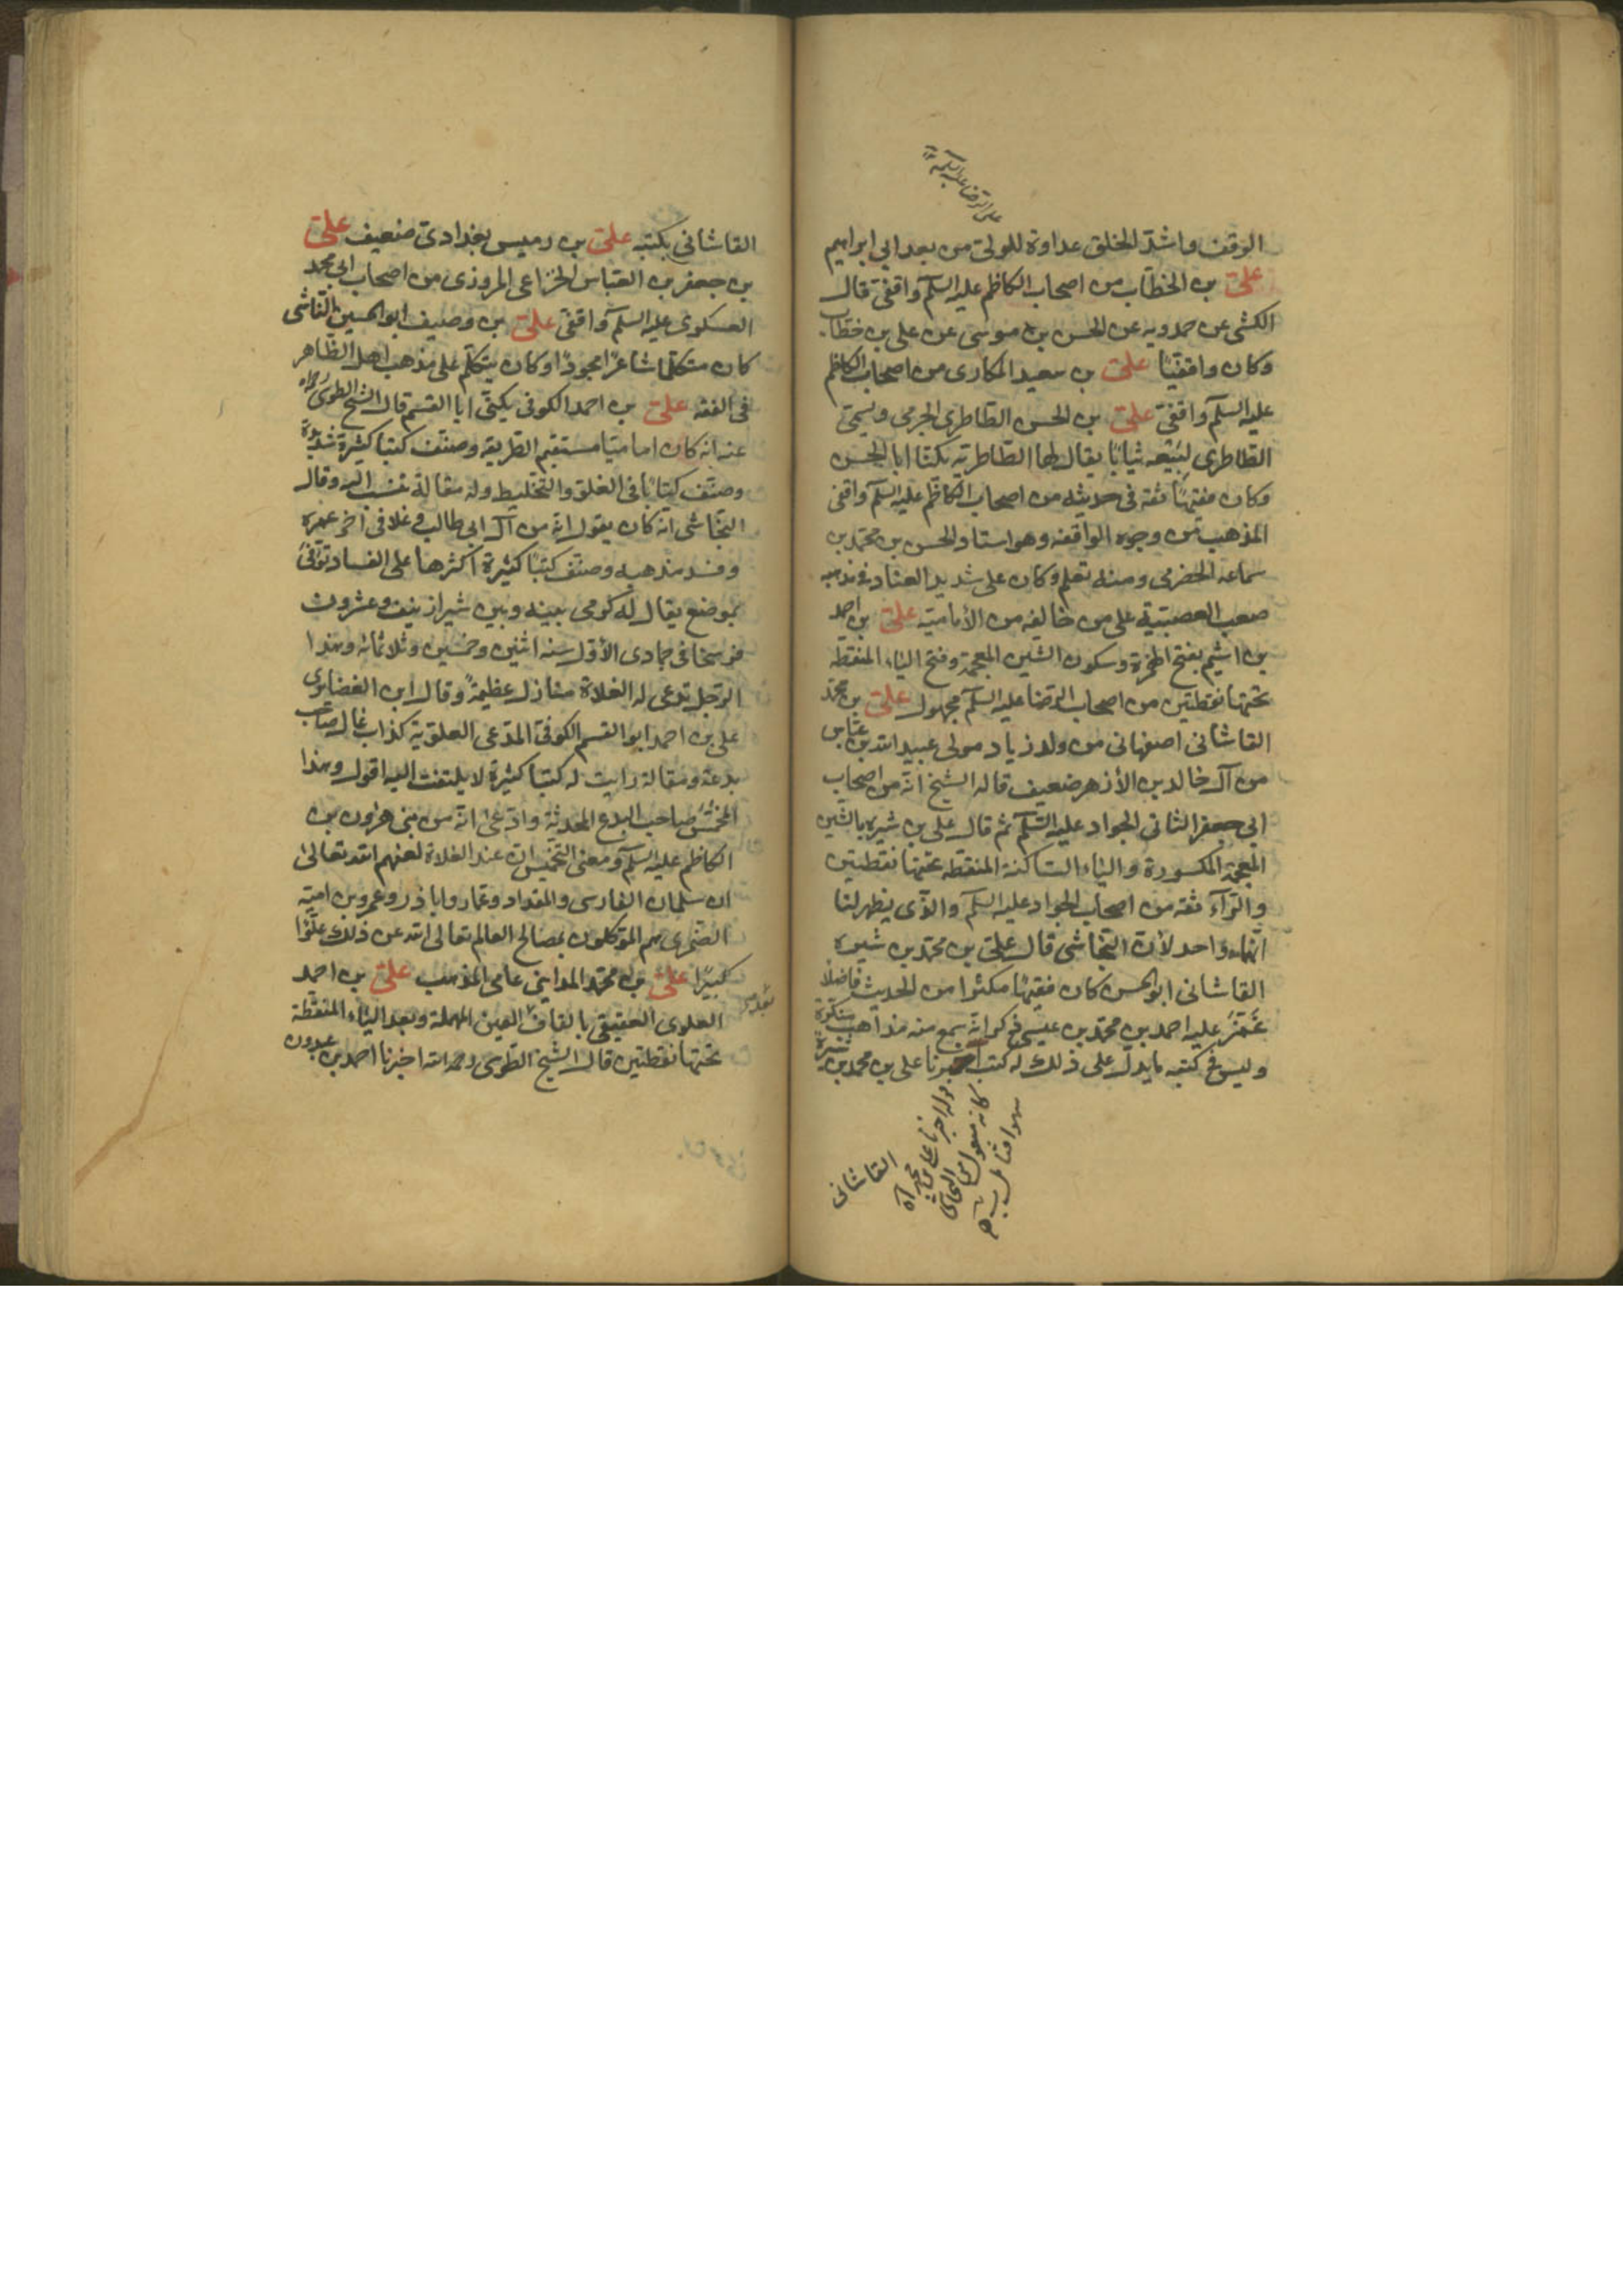 على الرضا عليه السلم
الوقف واشد الخلق عداوة للولى من بعد ابي ابراهيم
على بن الخطاب من اصحاب الكاظم عليه السلم واقفى قال
الكشى عن حمدويه عن الحسن بن موسى عن على بن خطاب
وكان واقفيا على بن سعيد المكارى من اصحاب الكاظم
عليه السلم واقفى على بن الحسن الطاطرى الجرمى ويسمى
الطاطرى لبيعه ثيابا يقال لها الطاطرية يكنا ابا الحسن
وكان فقيها ثقة فى حديثه من اصحاب الكاظم عليه السلم واقفى
المذهب من وجوه الواقفه وهو استاد الحسن بن محمد بن
سماعه الحضرمى ومنه تعلم وكان على شديد العناد فى مذهبه
صعب العصبية على من خالفه من الأمامية على بن احمد
بن اشيم بفتح الهمزة وسكون الشين المعجمة وفتح الياء المنقطه
تحتها نقطتين من اصحاب الرضا عليه السلم مجهول على بن محمد
القاشانى اصفهانى من ولد زياد مولى عبيد الله بن عباس
من آل خالد بن الأزهر ضعيف قاله الشيخ انه من اصحاب
ابى جعفر الثانى الجواد عليه السلم ثم قال على بن شيره بالشين
المعجمة المكسورة والياء الساكنة المنقطه تحتها نقطتين
والرآء ثقة من اصحاب الجواد عليه السلم والذى يظهر لنا
انهما واحد لأن النجاشى قال على بن محمد بن شيره
القاشانى ابو الحسن كان فقيها مكثرا من الحديث فاضلا
غمز عليه احمد بن محمد بن عيسى ذكر انه سمع منه مذاهب منكرة
وليس فى كتبه ما يدل على ذلك له كتب اخبرنا على بن محمد بن شيره
القاشانى
قوله اخبرنا على بن محمد آه
كانه منقول من النجاشى
القاشانى بكتبه على بن رميس بغدادى ضعيف على
بن جعفر بن العباس الخزاعى المروزى من اصحاب ابى محمد
العسكرى عليه السلم واقفى على بن وصيف ابو الحسين الناشى
كان متكلما شاعرا مجودا وكان يتكلم على مذهب اهل الظاهر
فى الفقه على بن احمد الكوفى يكنى ابا القسم قال الشيخ الطوسى رحمه الله
عنه انه كان اماميا مستقيم الطريقه وصنف كتبا كثيرة سديدة
وصنف كتابا فى الغلو والتخليط وله مقالة تنسب اليه وقال
النجاشى انه كان يقول انه من آل ابى طالب وغلا فى اخر عمره
وفسد مذهبه وصنف كتبا كثيرة اكثرها على الفساد توفى
بموضع يقال له كرمى بينه وبين شيراز نيف وعشرون
فرسخا فى جمادى الأولى سنه اثنين وخمسين وثلاثمائه وهذا
الرجل تدعى له الغلاة منازل عظيمة وقال ابن الغضايرى
على بن احمد ابو القسم الكوفى المدعى العلوية كذاب غال صاحب
بدعة ومقالة رايت له كتبا كثيرة لا يلتفت اليه اقول وهذا
المخمس صاحب البدع المحدثة وادعى انه من بنى هرون بن
الكاظم عليه السلم ومعنى التخميس ان عند الغلاة لعنهم الله تعالى
ان سلمان الفارسى والمقداد وعمار وابا ذر وعمرو بن امية
الضمرى هم الموكلون بمصالح العالم تعالى الله عن ذلك علوا
كبيرا على بن محمد المداينى عامى المذهب على بن احمد
العلوى العقيقى بالقاف بعد العين المهملة وبعد الياء المنقطة
تحتها نقطتين قال الشيخ الطوسى رحمه الله اخبرنا احمد بن عبدون